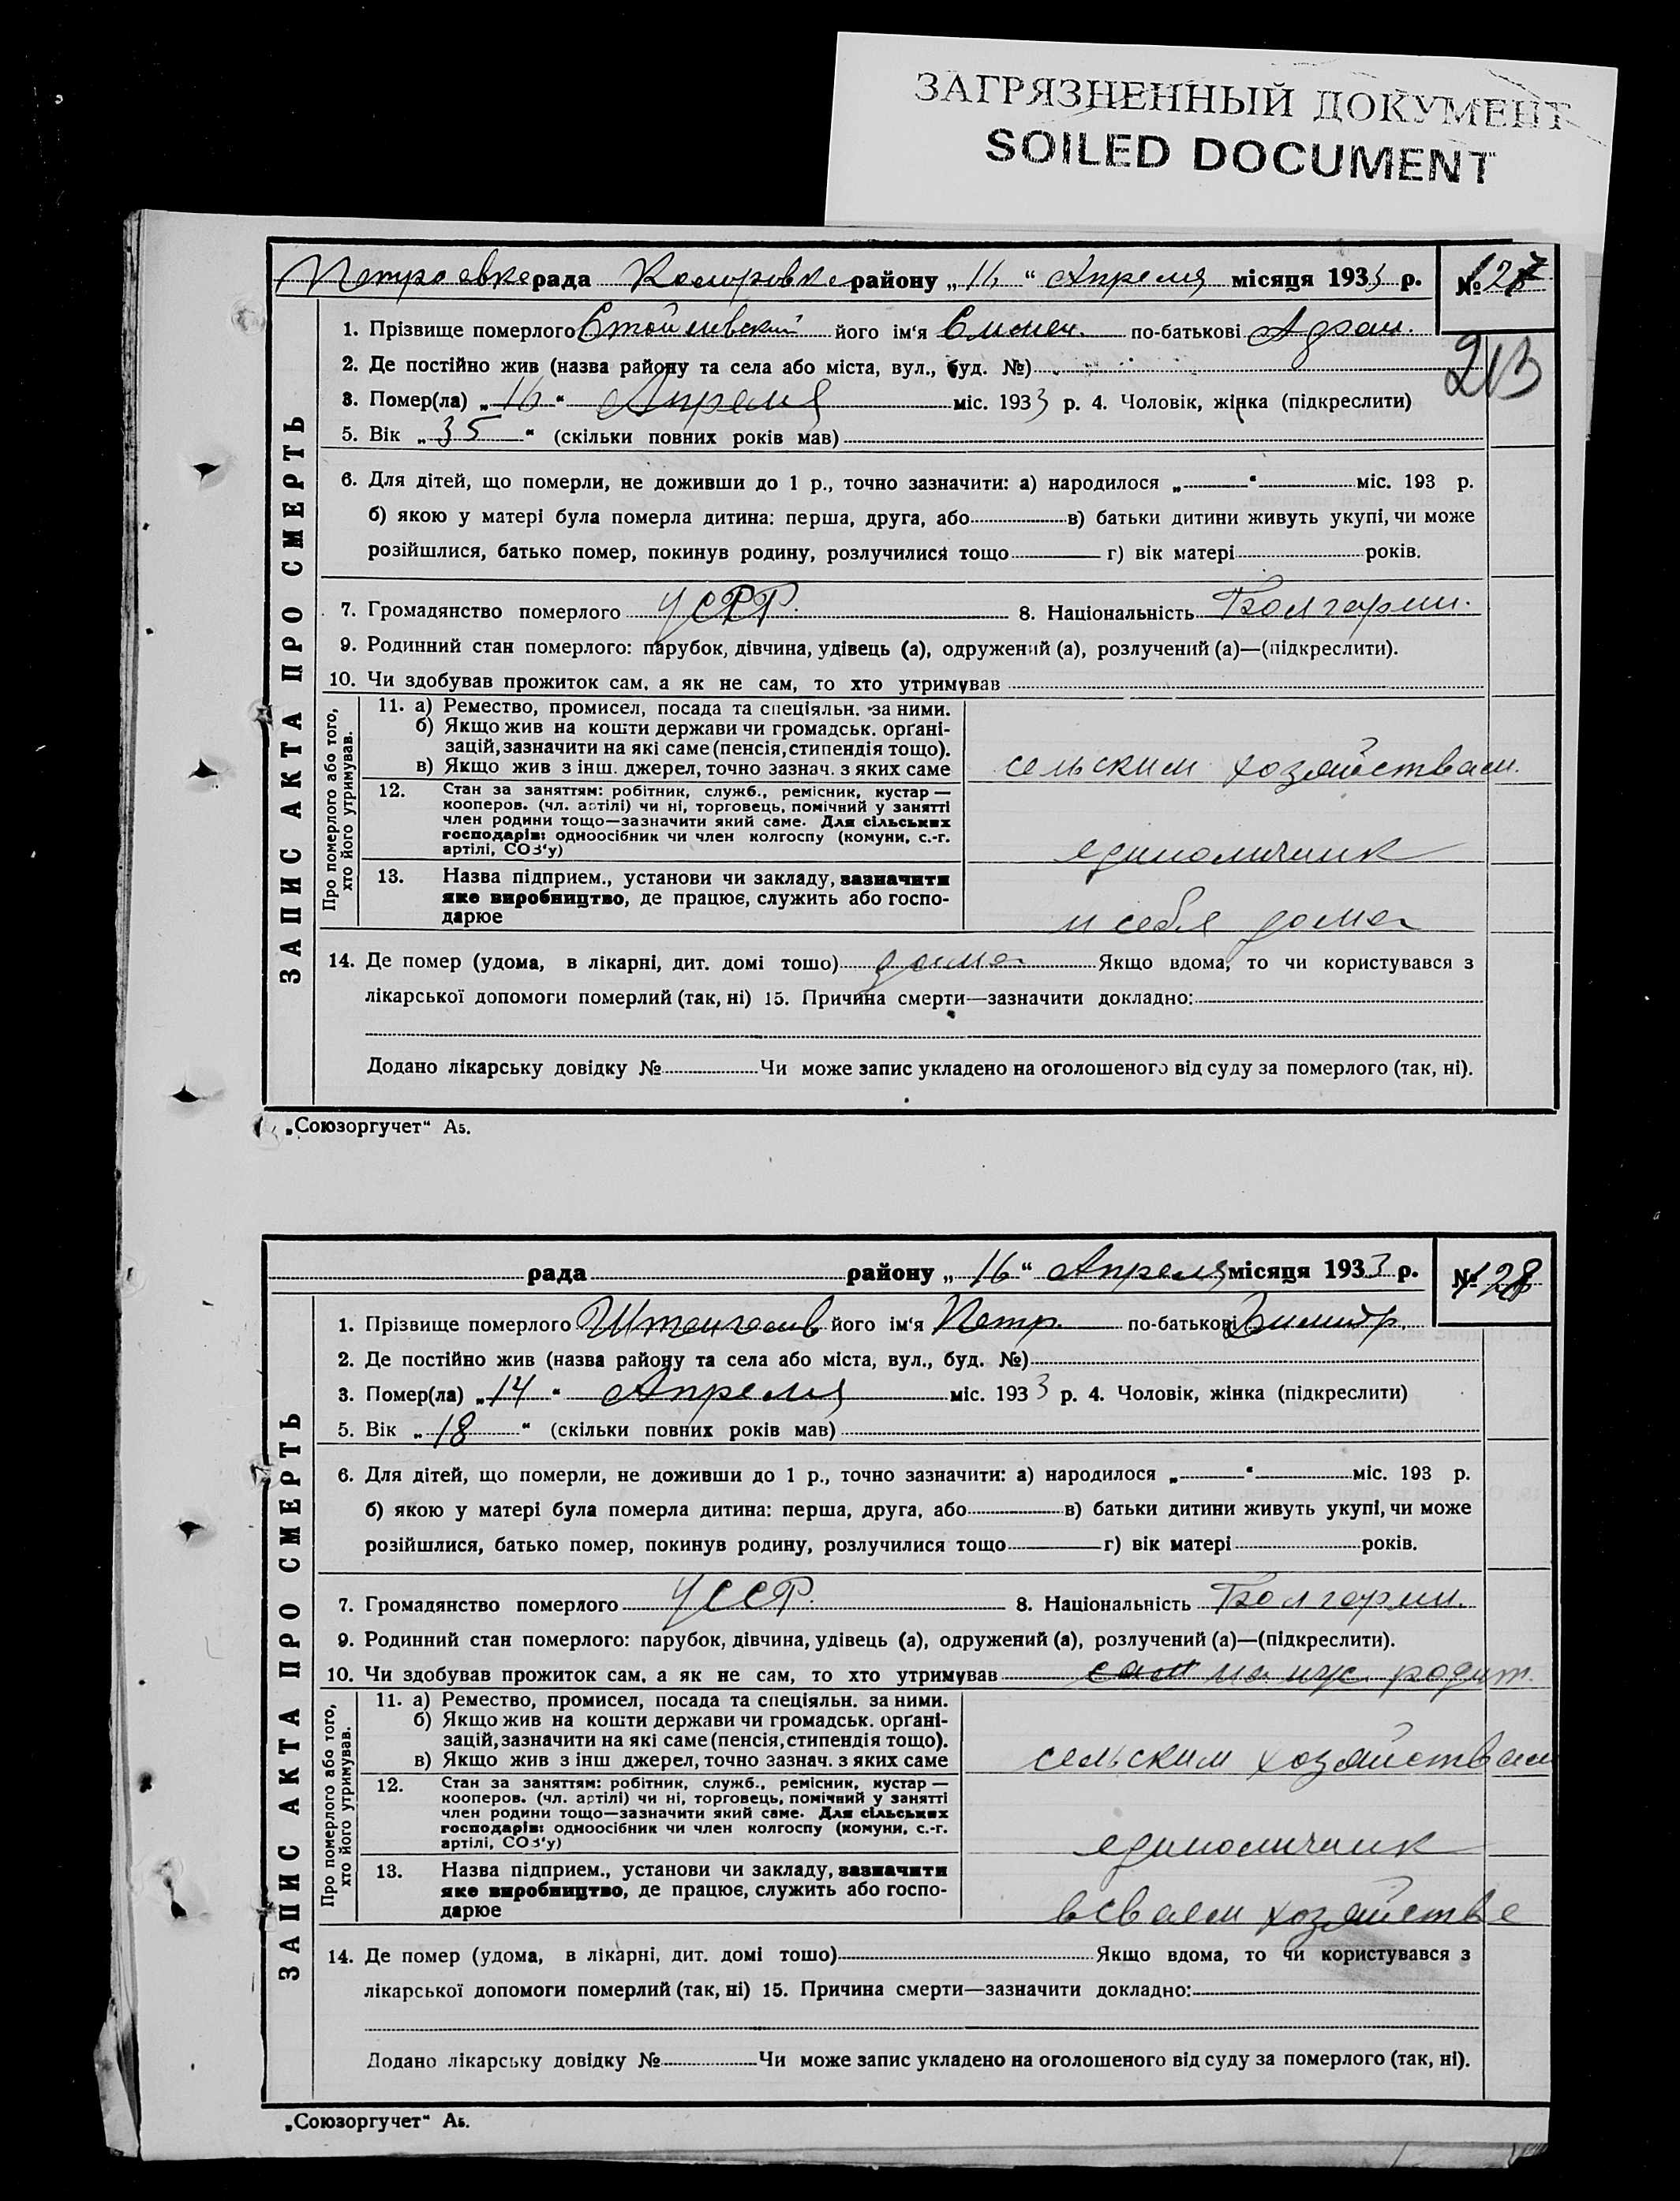 ЗАГРЯЗНЕННЫЙ ДОКУМЕНТ
SOILED DOCUMENT
рада району „16“ Апреля місяця 1933 р. № 127
213
ЗАПИС АКТА ПРО СМЕРТЬ
1. Прізвище померлого його ім'я Симон. по-батькові
2. Де постійно жив (назва району та села або міста, вул., буд. №)
3. Помер(ла) „16“ Апреля міс. 1933 р. 4. Чоловік, жінка (підкреслити)
5. Вік „35“ (скільки повних років мав)
6. Для дітей, що померли, не доживши до 1 р., точно зазначити: а) народилося „ “ міс. 193 р.
б) якою у матері була померла дитина: перша, друга, або в) батьки дитини живуть укупі, чи може
розійшлися, батько помер, покинув родину, розлучилися тощо г) вік матері років.
7. Громадянство померлого УСРР. 8. Національність Болгарин.
9. Родинний стан померлого: парубок, дівчина, удівець (а), одружений (а), розлучений (а)—(підкреслити).
10. Чи здобував прожиток сам, а як не сам, то хто утримував
Про померлого або того,
хто його утримував.
11. а) Ремество, промисел, посада та спеціяльн. за ними.
б) Якщо жив на кошти держави чи громадськ. орґані-
зацій, зазначити на які саме (пенсія, стипендія тощо).
в) Якщо жив з інш. джерел, точно зазнач. з яких саме
сельским хозяйствам.
12. Стан за заняттям: робітник, служб., ремісник, кустар —
кооперов. (чл. артілі) чи ні, торговець, помічний у занятті
член родини тощо—зазначити який саме. Для сільських
господарів: одноосібник чи член колгоспу (комуни, с.-г.
артілі, СОЗ'у)
единоличник
13. Назва підприєм., установи чи закладу, зазначити
яке виробництво, де працює, служить або госпо-
дарює
и себя дома
14. Де помер (удома, в лікарні, дит. домі тошо) дома Якщо вдома, то чи користувався з
лікарської допомоги померлий (так, ні) 15. Причина смерти—зазначити докладно:
Додано лікарську довідку № Чи може запис укладено на оголошеного від суду за померлого (так, ні).
„Союзоргучет“ А5.
рада району „16“ Апреля місяця 1933 р. № 128
ЗАПИС АКТА ПРО СМЕРТЬ
1. Прізвище померлого його ім'я Петр. по-батькові Димитр.
2. Де постійно жив (назва району та села або міста, вул., буд. №)
3. Помер(ла) „14“ Апреля міс. 1933 р. 4. Чоловік, жінка (підкреслити)
5. Вік „18“ (скільки повних років мав)
6. Для дітей, що померли, не доживши до 1 р., точно зазначити: а) народилося „ “ міс. 193 р.
б) якою у матері була померла дитина: перша, друга, або в) батьки дитини живуть укупі, чи може
розійшлися, батько помер, покинув родину, розлучилися тощо г) вік матері років.
7. Громадянство померлого УССР. 8. Національність Болгарин.
9. Родинний стан померлого: парубок, дівчина, удівець (а), одружений (а), розлучений (а)—(підкреслити).
10. Чи здобував прожиток сам, а як не сам, то хто утримував сам на иж. родит.
Про померлого або того,
хто його утримував.
11. а) Ремество, промисел, посада та спеціяльн. за ними.
б) Якщо жив на кошти держави чи громадськ. орґані-
зацій, зазначити на які саме (пенсія, стипендія тощо).
в) Якщо жив з інш джерел, точно зазнач. з яких саме
сельским хозяйствам
12. Стан за заняттям: робітник, служб., ремісник, кустар —
кооперов. (чл. артілі) чи ні, торговець, помічний у занятті
член родини тощо—зазначити який саме. Для сільських
господарів: одноосібник чи член колгоспу (комуни, с.-г.
артілі, СОЗ'у)
единоличник
13. Назва підприєм., установи чи закладу, зазначити
яке виробництво, де працює, служить або госпо-
дарює
всваем хозяйстве
14. Де помер (удома, в лікарні, дит. домі тошо) Якщо вдома, то чи користувався з
лікарської допомоги померлий (так, ні) 15. Причина смерти—зазначити докладно:
Додано лікарську довідку № Чи може запис укладено на оголошеного від суду за померлого (так, ні).
„Союзоргучет“ А5.